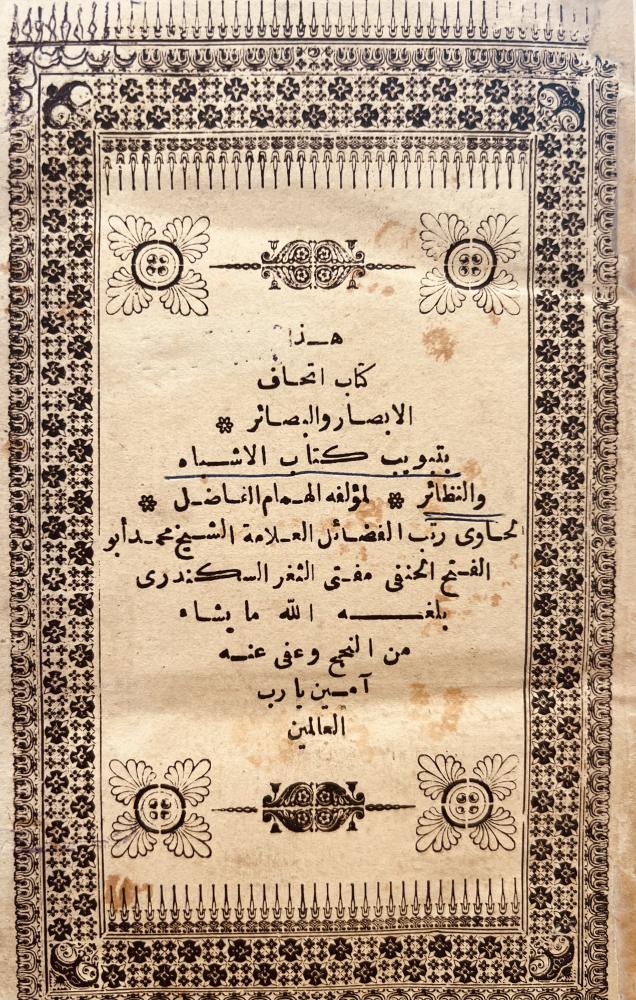 هذا
كتاب اتحاف
الابصار والبصائر
بتبويب كتاب الاشباه
والنظائر لمؤلفه الهمام الفاضل
لحاوى رتب الفضائل العلامة الشيخ محمد أبو
الفتح الحنفى مفتى الثغر السكندرى
بلغه الله ما يشاء
من النجح وعفى عنه
آمين يا رب
العالمين